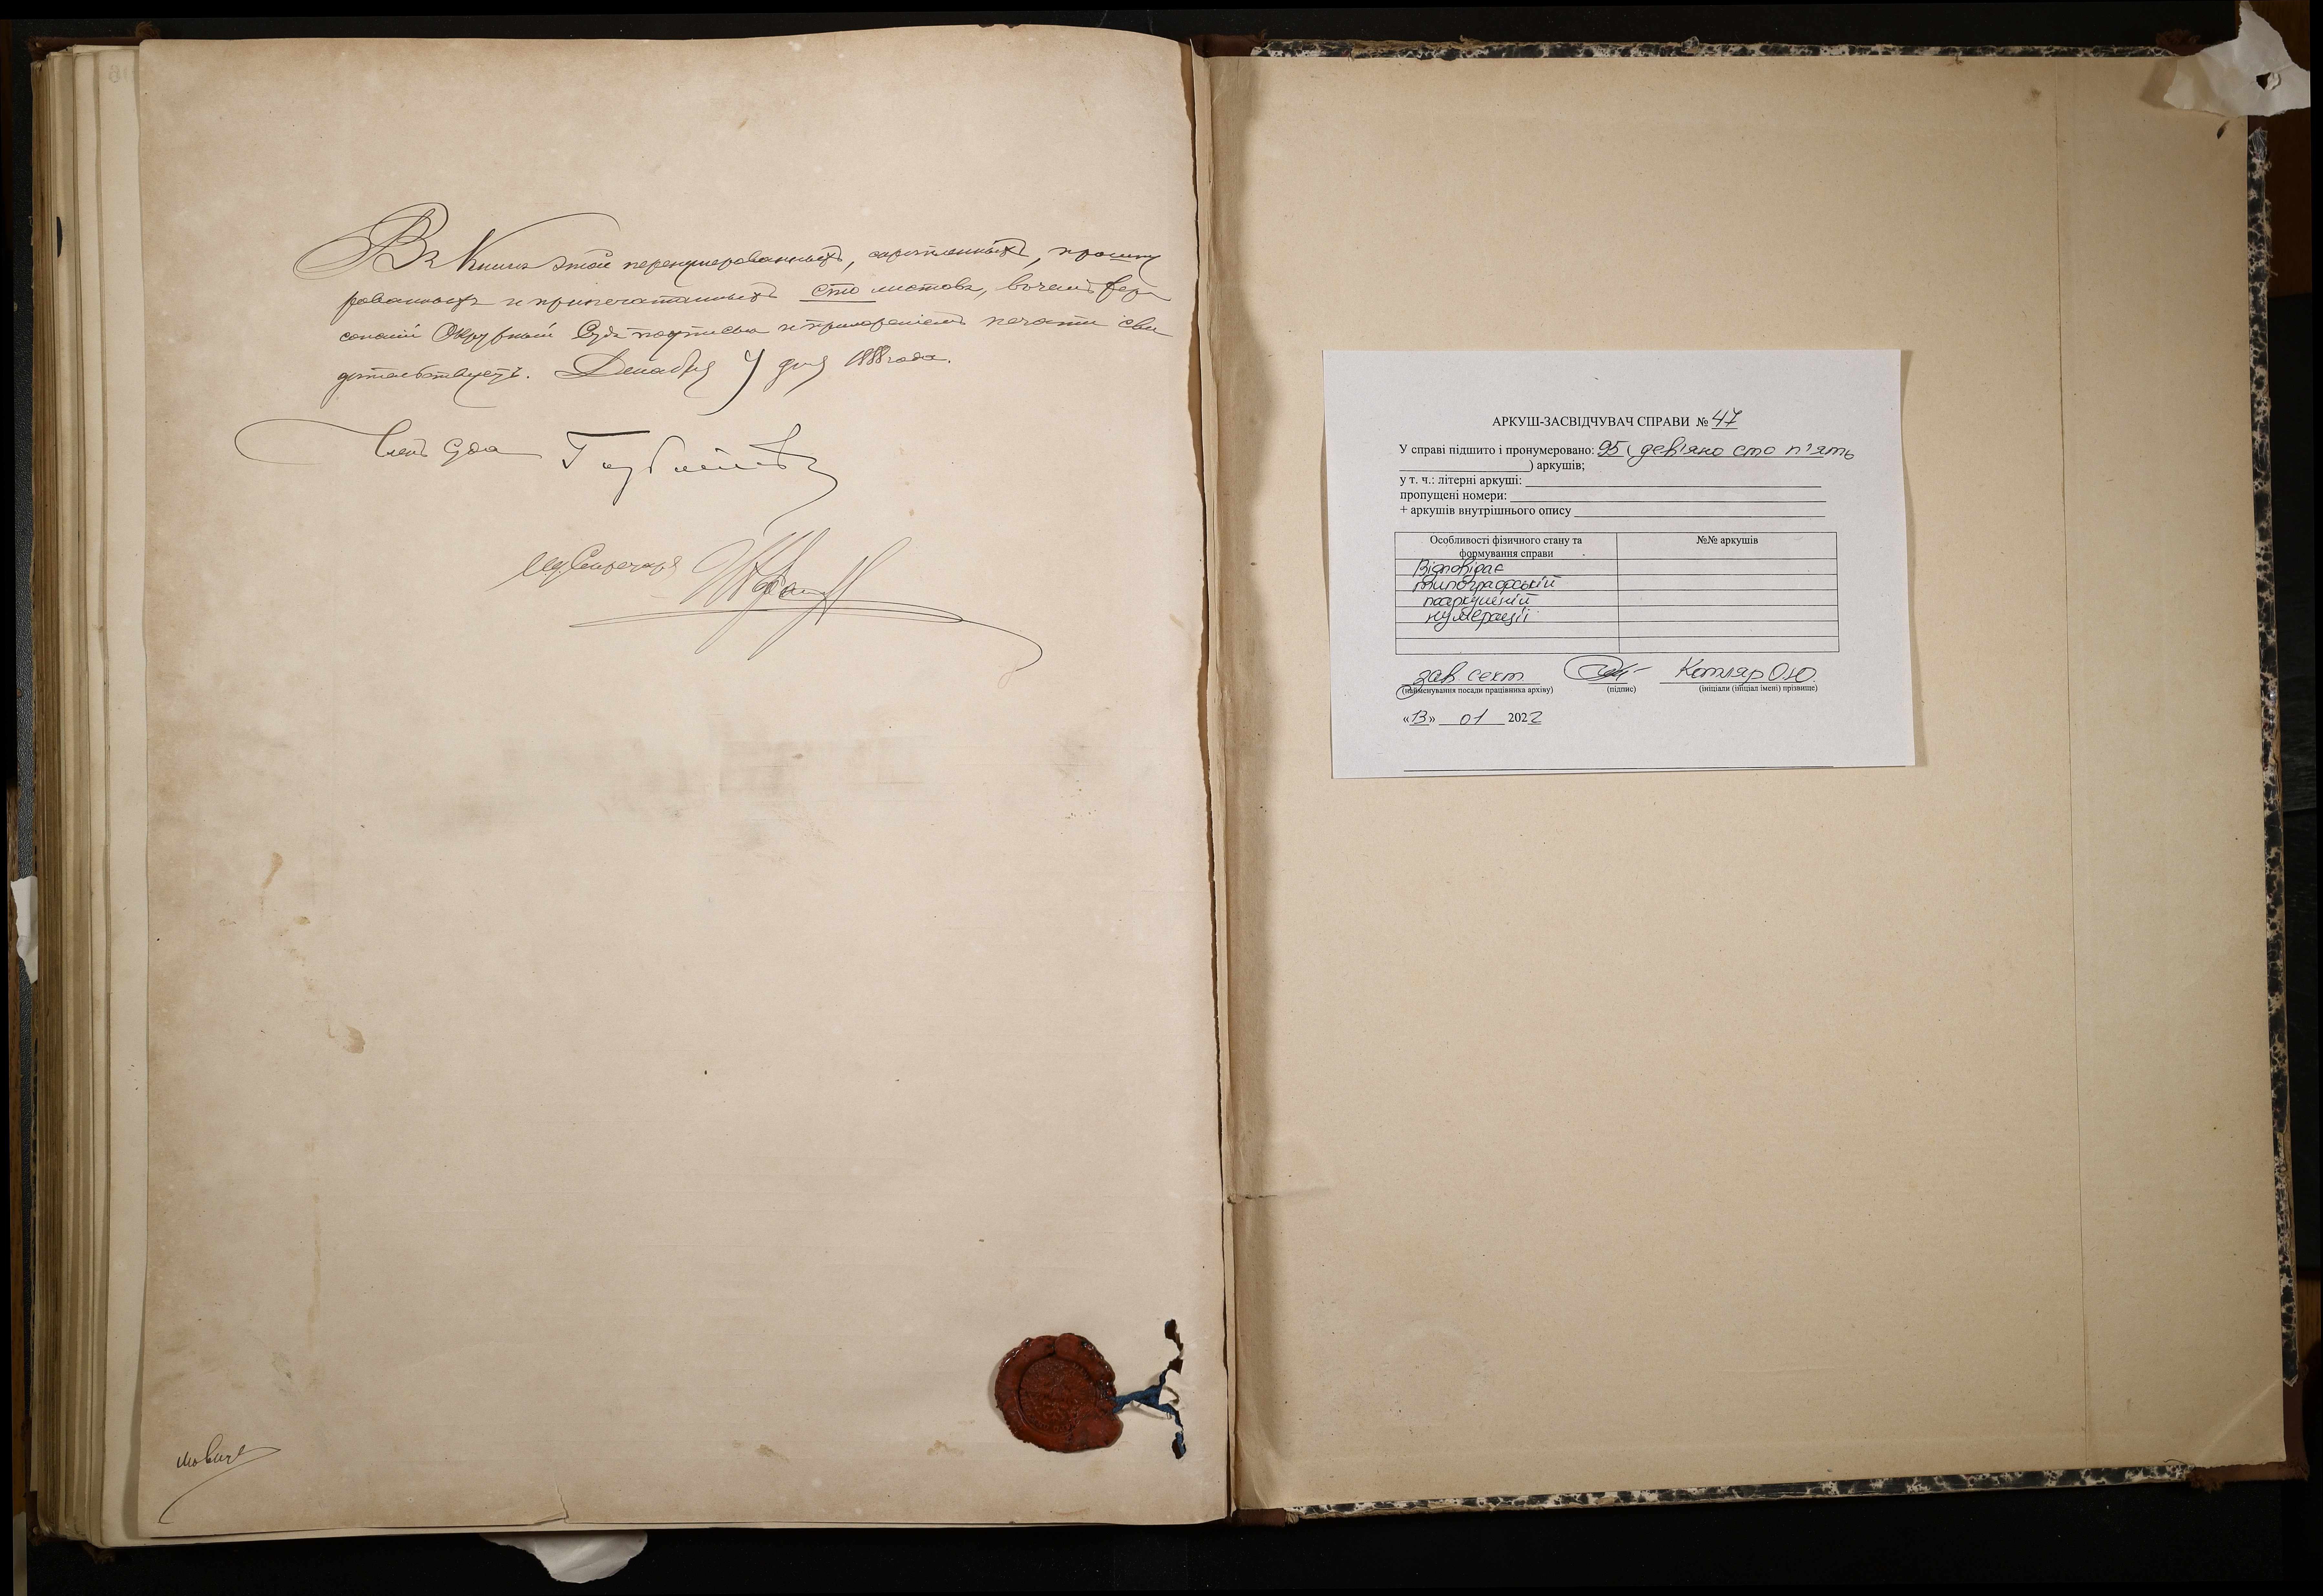 Въ Книгѣ этой перенумерованныхъ, скрѣпленныхъ, прошну
рованныхъ и припечатанныхъ сто листовъ, въ чемъ Хер
сонскій Окружный Судъ подписью и приложеніемъ печати сви
дѣтельствуетъ. Декабря 7 дня 1888 года.
Членъ Суда
И.д. Секретаря
АРКУШ-ЗАСВІДЧУВАЧ СПРАВИ № 47
У справі підшито і пронумеровано: 95 ( дев'яносто п'ять
) аркушів;
у т. ч.: літерні аркуші:
пропущені номери:
+ аркушів внутрішнього опису
Особливості фізичного стану та
формування справи
№№ аркушів
Відповідає
типографській
поаркушній
нумерації
зав. сект. Котляр О.Ю.
(найменування посади працівника архіву) (підпис) (ініціали (ініціал імені) прізвище)
«13» 01 2022